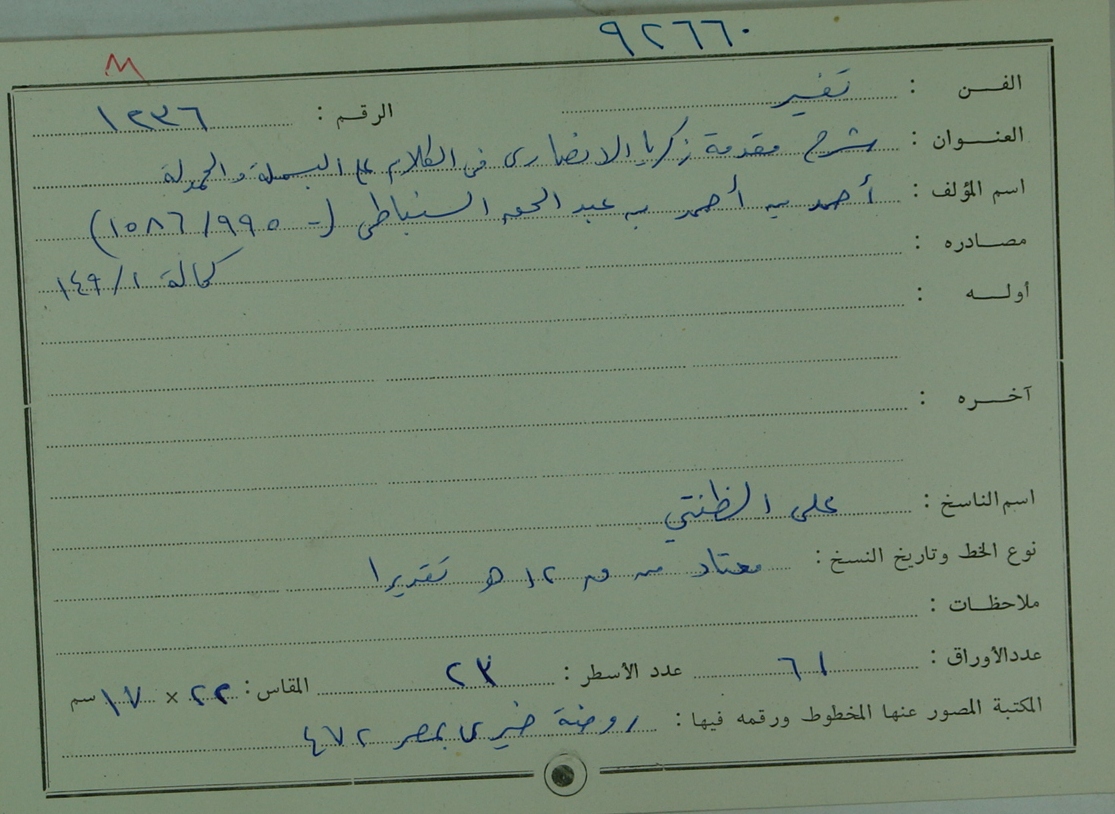 ٩٢٦٦٠
M
الفن : تفسير الرقم : ١٢٣٦
العنوان : شرح مقدمة زكريا الانصارى فى الكلام على البسملة والحمدلة
اسم المؤلف : أحمد بن أحمد بن عبد الحق السنباطى (- ٩٩٥/١٥٨٦)
مصادره : كحالة ١/١٤٩
أوله :
آخره :
اسم الناسخ : على الظنتي
نوع الخط وتاريخ النسخ : معتاد من ق ١٢ هـ تقديرا
ملاحظات :
عدد الأوراق : ٦١ عدد الأسطر : ٢٣ المقاس : ٢٢ × ١٧ سم
المكتبة المصور عنها المخطوط ورقمه فيها : روضة خيرى بمصر ٤٧٢